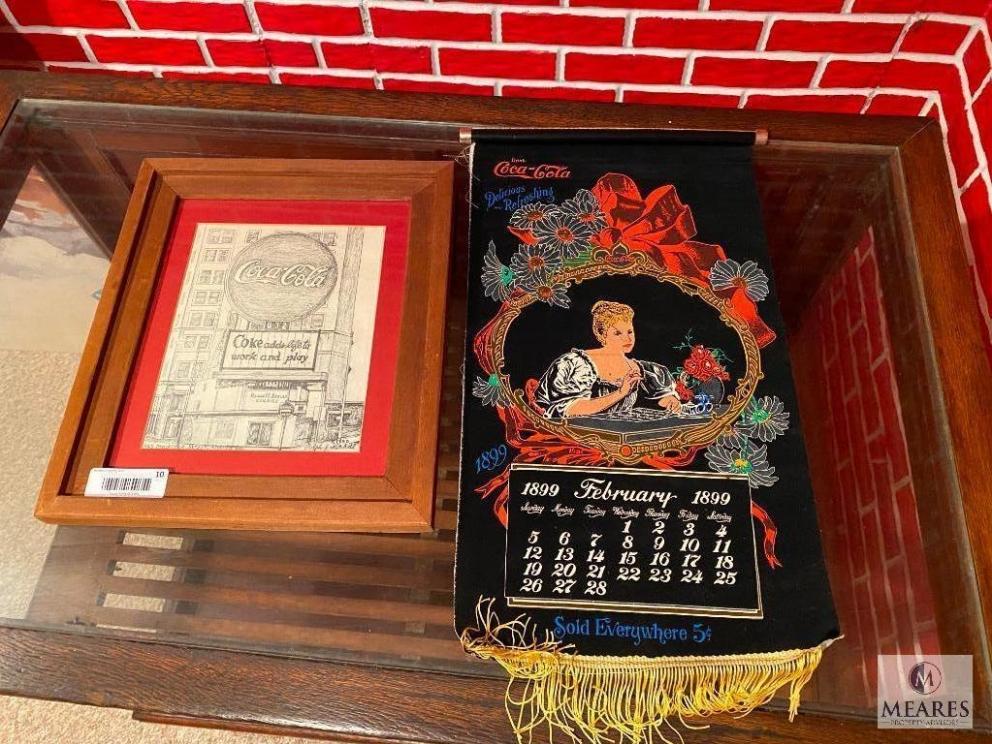 Coca-Cola
Coke adds life to
work and play
10
Drink
Coca-Cola
Delicious
and Refreshing
1899
1899 February 1899
Sunday Monday Tuesday Wednesday Thursday Friday Saturday
1 2 3 4
5 6 7 8 9 10 11
12 13 14 15 16 17 18
19 20 21 22 23 24 25
26 27 28
Sold Everywhere 5¢
M
MEARES
PROPERTY ADVISORS